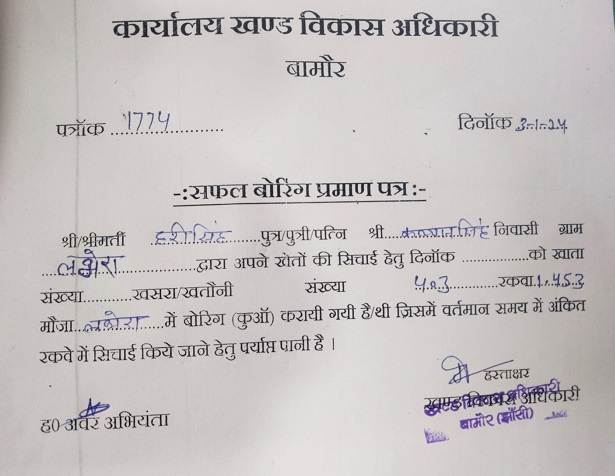 कार्यालय खण्ड विकास अधिकारी
बामौर
पत्रॉक ...1774.......................
दिनॉक 3-1-24
-:सफल बोरिंग प्रमाण पत्र:-
श्री/श्रीमती हरीसिंह.......पुत्र/पुत्री/पत्नि श्री....कल्यानसिंह निवासी ग्राम
....लभेरा..............द्वारा अपने खेतों की सिचाई हेतु दिनॉक ................को खाता
संख्या...........खसरा/खतौनी संख्या 403...........रकवा.1.453
मौजा..लभेरा......में बोरिंग (कुऑ) करायी गयी है/थी जिसमें वर्तमान समय में अंकित
रकवे में सिचाई किये जाने हेतु पर्याप्त पानी है ।
हस्ताक्षर
ह0 अवर अभियंता
खण्ड विकास अधिकारी
खण्ड विकास अधिकारी
बामौर (झाँसी)